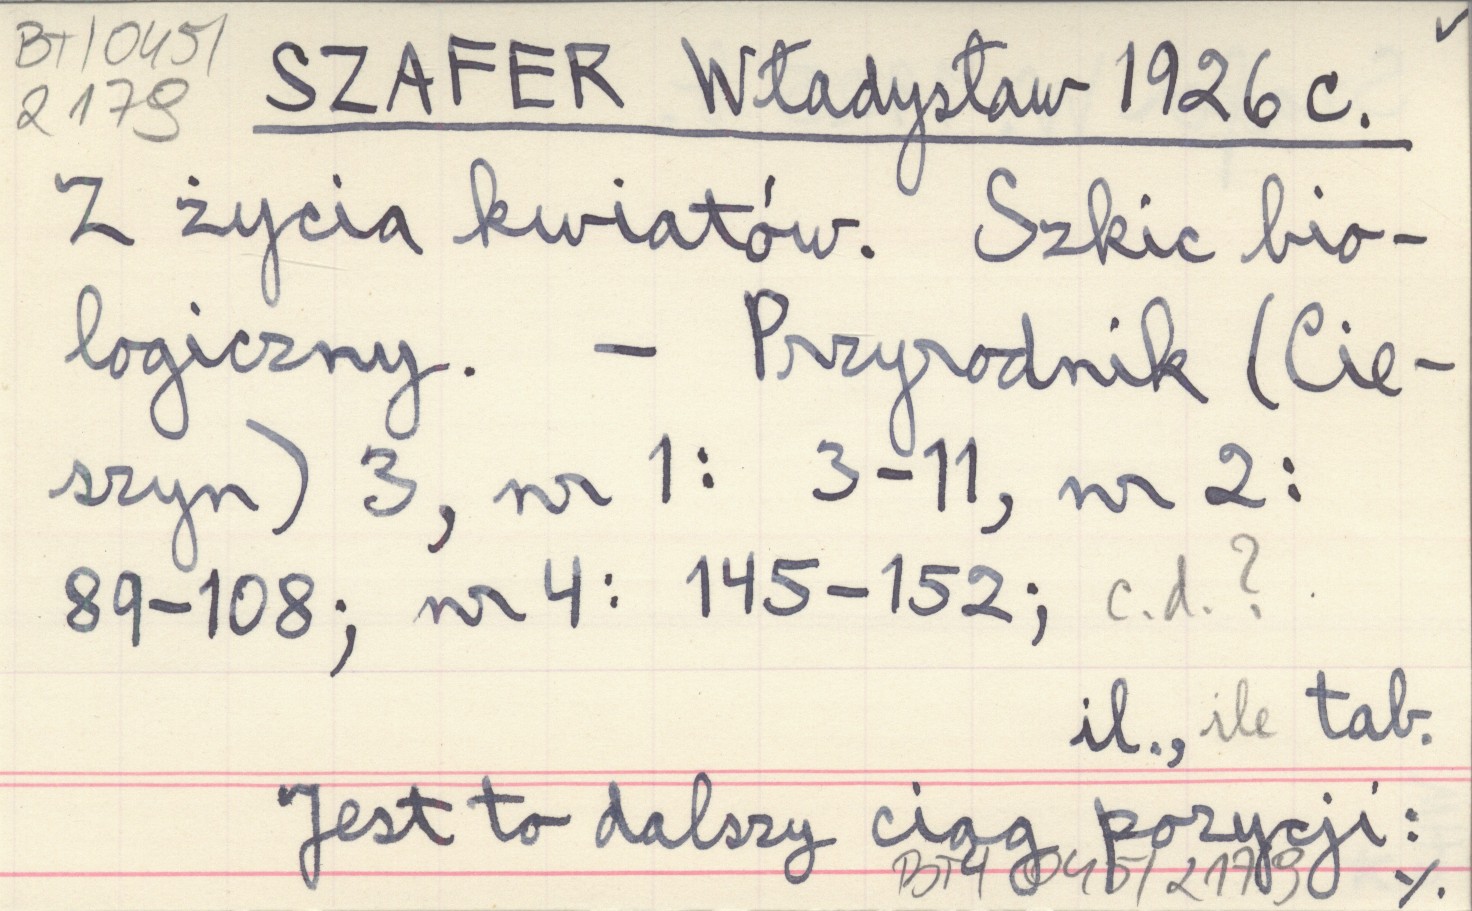 BT/045/
2179
SZAFER Władysław 1926 c.
Z życia kwiatów. Szkic bio-
logiczny. - Przyrodnik (Cie-
szyn) 3, nr 1: 3-11, nr 2:
89-108; nr 4: 145-152; c.d.?
il., ile tab.
Jest to dalszy ciąg pozycji:
BT4 045/2179 ./.